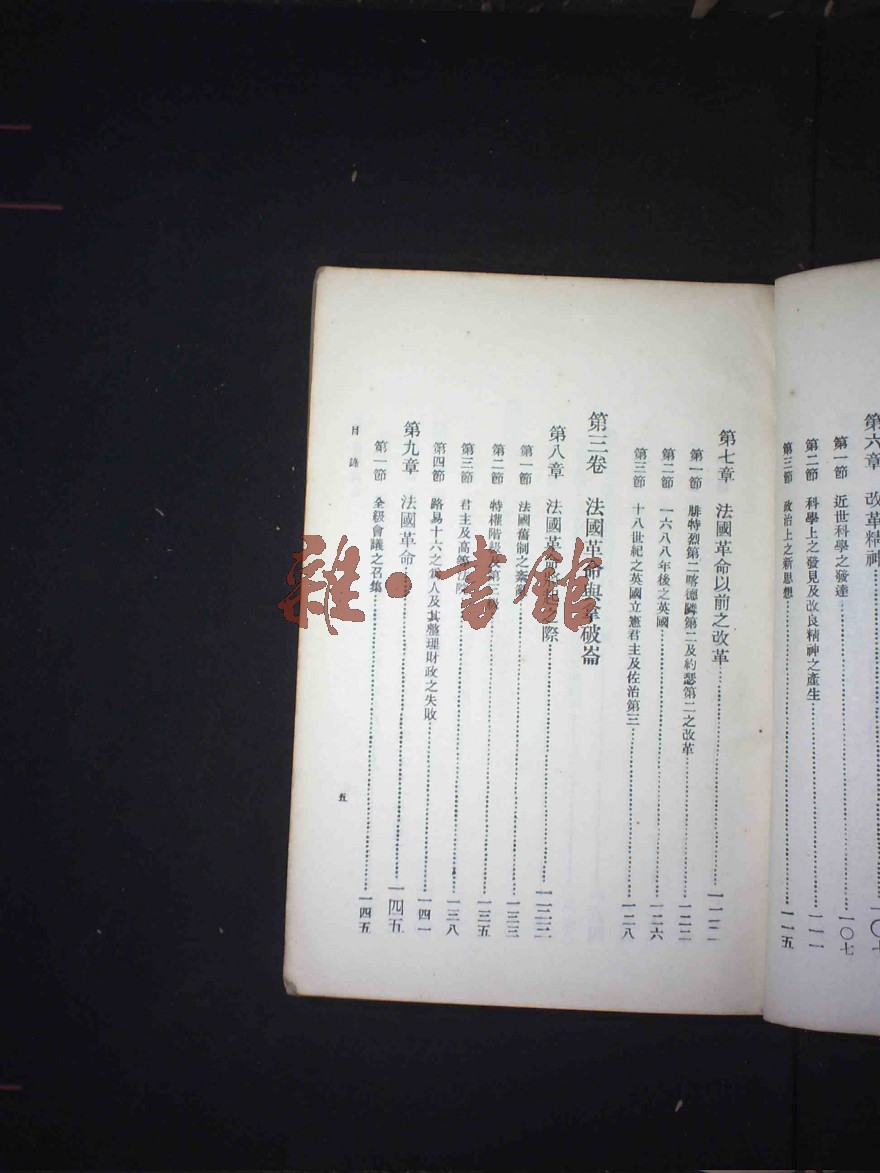 第六章 改革精神 一〇七
第一節 近世科學之發達 一〇七
第二節 科學上之發見及改良精神之產生 一一一
第三節 政治上之新思想 一一五
第七章 法國革命以前之改革 一二二
第一節 腓特烈第二喀德隣第二及約瑟第二之改革 一二二
第二節 一六八八年後之英國 一二六
第三節 十八世紀之英國立憲君主及佐治第三 一二八
第三卷 法國革命與拿破崙
第八章 法國革命將起之際 一三三
第一節 法國舊制之紊亂 一三三
第二節 特權階級及第三級 一三五
第三節 君主及高等法院 一三八
第四節 路易十六之爲人及其整理財政之失敗 一四一
第九章 法國革命 一四五
第一節 全級會議之召集 一四五
目錄
五
雜·書館